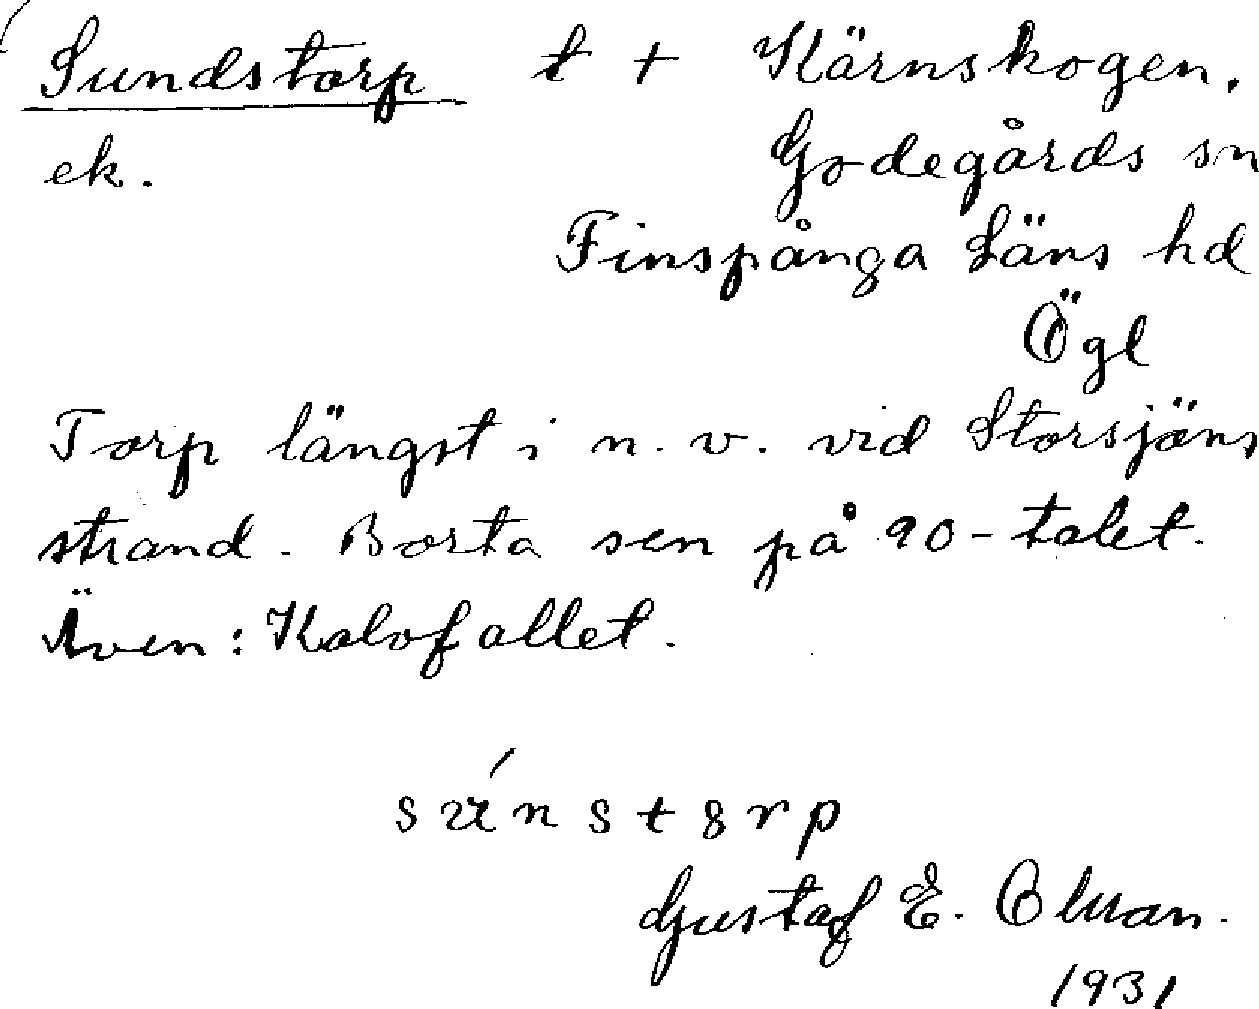 Sundstorp t + Kärnskogen,
ek. Godegårds sn
Finspånga Läns hd
Ögl
Torp längst i n. v. vid Storsjöns
strand. Borta sen på 90-talet.
Även: Kalvfallet.
Gustaf E. Olman.
1931